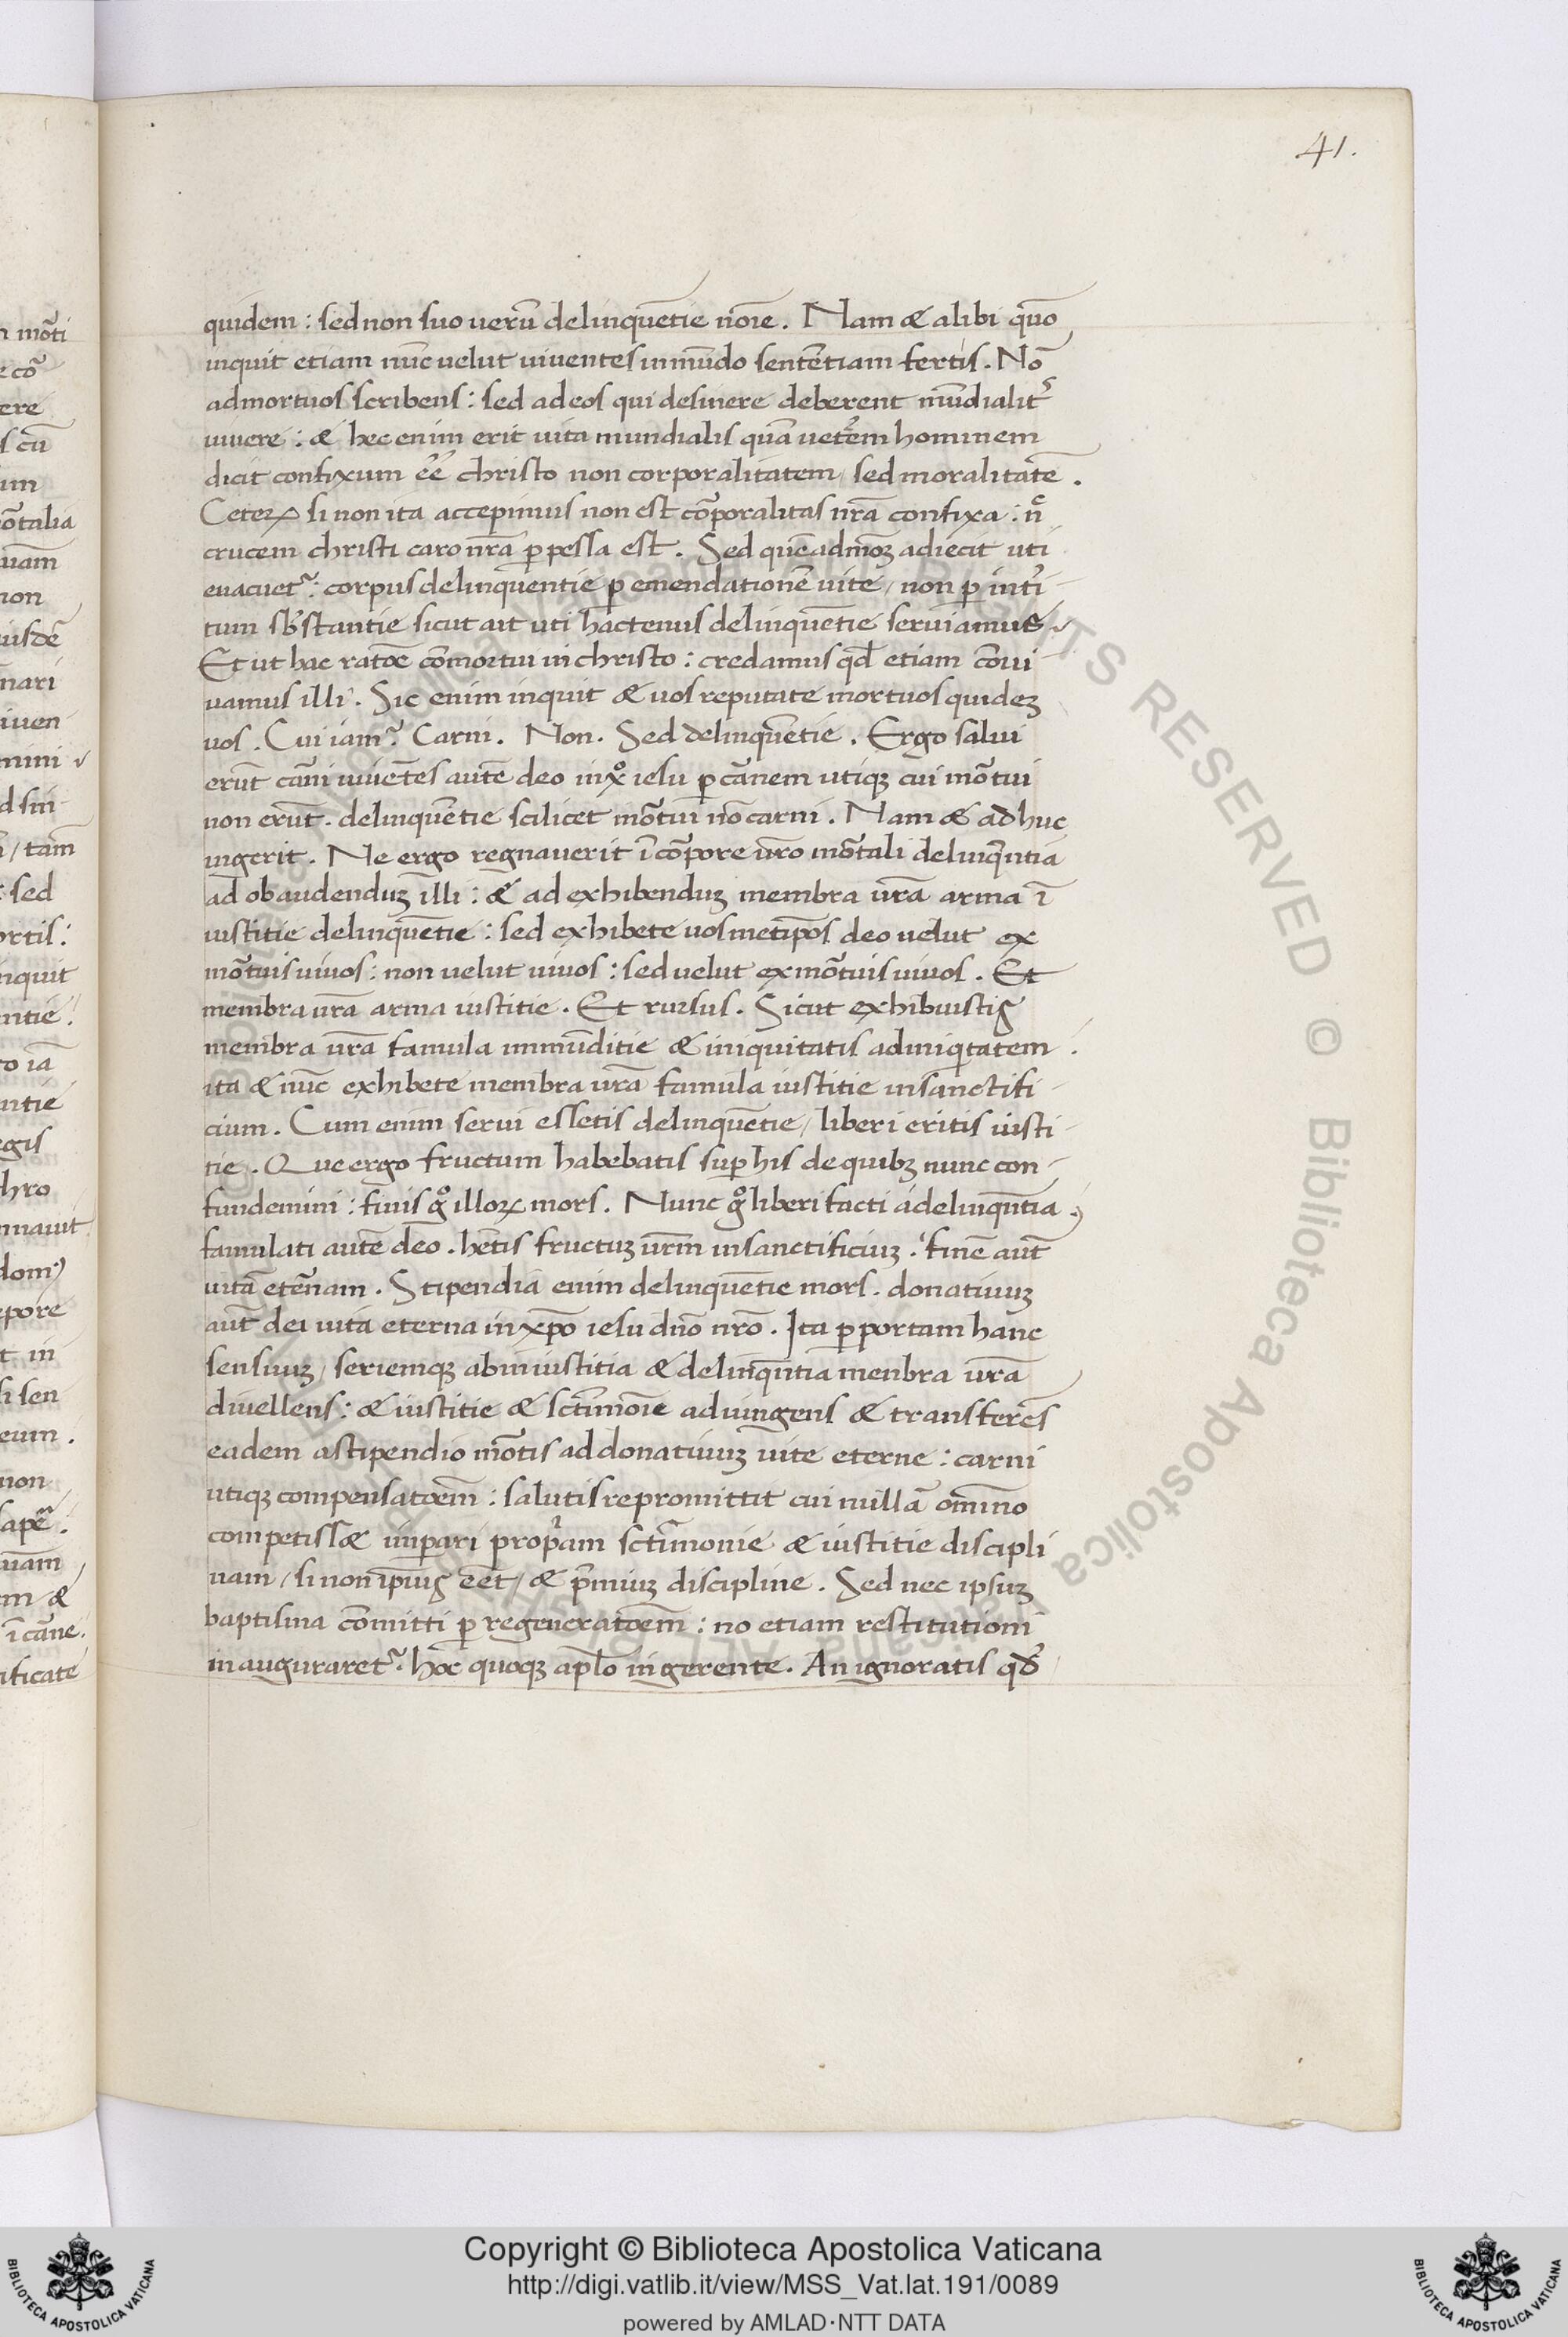 41.
quidem : sed non suo uerũ delinquẽtie noĩe . Nam & alibi quõ
inquit etiam nũc velut viventes in mũdo sentẽtiam fertis . Nõ
ad mortuos scribens : sed ad eos qui desinere deberent mũdialit᷑
vivere : & hec enim erit vita mundialis quã vet̃em hominem
dicit confixum eẽ christo non corporalitatem / sed moralitatẽ .
Ceteꝝ si non ita accepimus non est cõꝑporalitas nrã confixa : n̄
crucem christi caro nrã ꝑpessa est . Sed quẽadmoꝫ adiecit uti
evacuet᷑ : corpus delinquentie ꝑ emendationẽ vite / non ꝑ intĩ-
tum sb̃stantie sicut ait uti hactenus delinquẽtie serviamus
Et ut hac ratõe cõmortui in christo : credamus qd̃ etiam cõvi-
vamus illi . Sic enim inquit & vos reputate mortuos quideꝫ
vos . Cui iam ? Carni . Non . Sed delinquẽtie . Ergo salui
erũt carñi viuẽtes autẽ deo in xᵒ iesu ꝑ carñem utiqꝫ cui mõtui
non erũt . delinquẽtie scilicet mõtui nõ carni . Nam & ad huc
ingerit . Ne ergo regnauerit ĩ cõpore ur̃o mõtali delinq̃ntia
ad obaudenduꝫ illi : & ad exhibenduꝫ membra ur̃a arma ĩ
iustitie delinquẽtie : sed exhibete vosmetip̃os deo velut ex
mõtuis vivos : non velut vivos : sed velut ex mõtuis vivos . Et
membra ur̃a arma iustitie . Et rursus . Sicut exhibuistis
membra ur̃a famula immũditie & iniquitatis ad iniqitatem .
ita & nũc exhibete membra ur̃a famula iustitie in sanctifi-
cium . Cum enim servi essetis delinquẽtie / liberi eritis iusti-
tie . Que ergo fructum habebatis suꝑ his de quibꝫ nunc con-
fundemini : finis gͦ illoꝝ mors . Nunc gͦ liberi facti a delinqũtia
famulati autẽ deo . hẽtis fructuꝫ ur̃m in sanctificiuꝫ . finẽ aut̃
vitã etẽnam . Stipendia enim delinquẽtie mors . donativuꝫ
aut̃ dei vita eterna in xp̃o iesu dño nr̃o . Ita ꝑ portam hanc
sensuuꝫ / seriemqꝫ ab iniustitia & delinq̃ntia menbra ur̃a
divellens : & iustitie & sctĩmoĩe adiungens & transferẽs
eadem a stipendio mõtis ad donativuꝫ vite eterne : carni
utiqꝫ compensatõem : salutis repromittit cui nullã omĩno
competiss& imꝑari propr̃am sctĩmonie & iustitie discipli
nam / si non ip̃ius eẽt / & pr̃miuꝫ discipline . Sed nec ipsuꝫ
baptisma cõmitti ꝑ regeneratõem : no etiam restitutioni
inauguraret᷑ . hoc quoqꝫ apl̃o ingerente . An ignoratis qd̃
Copyright © Biblioteca Apostolica Vaticana
http://digi.vatlib.it/view/MSS_Vat.lat.191/0089
powered by AMLAD·NTT DATA